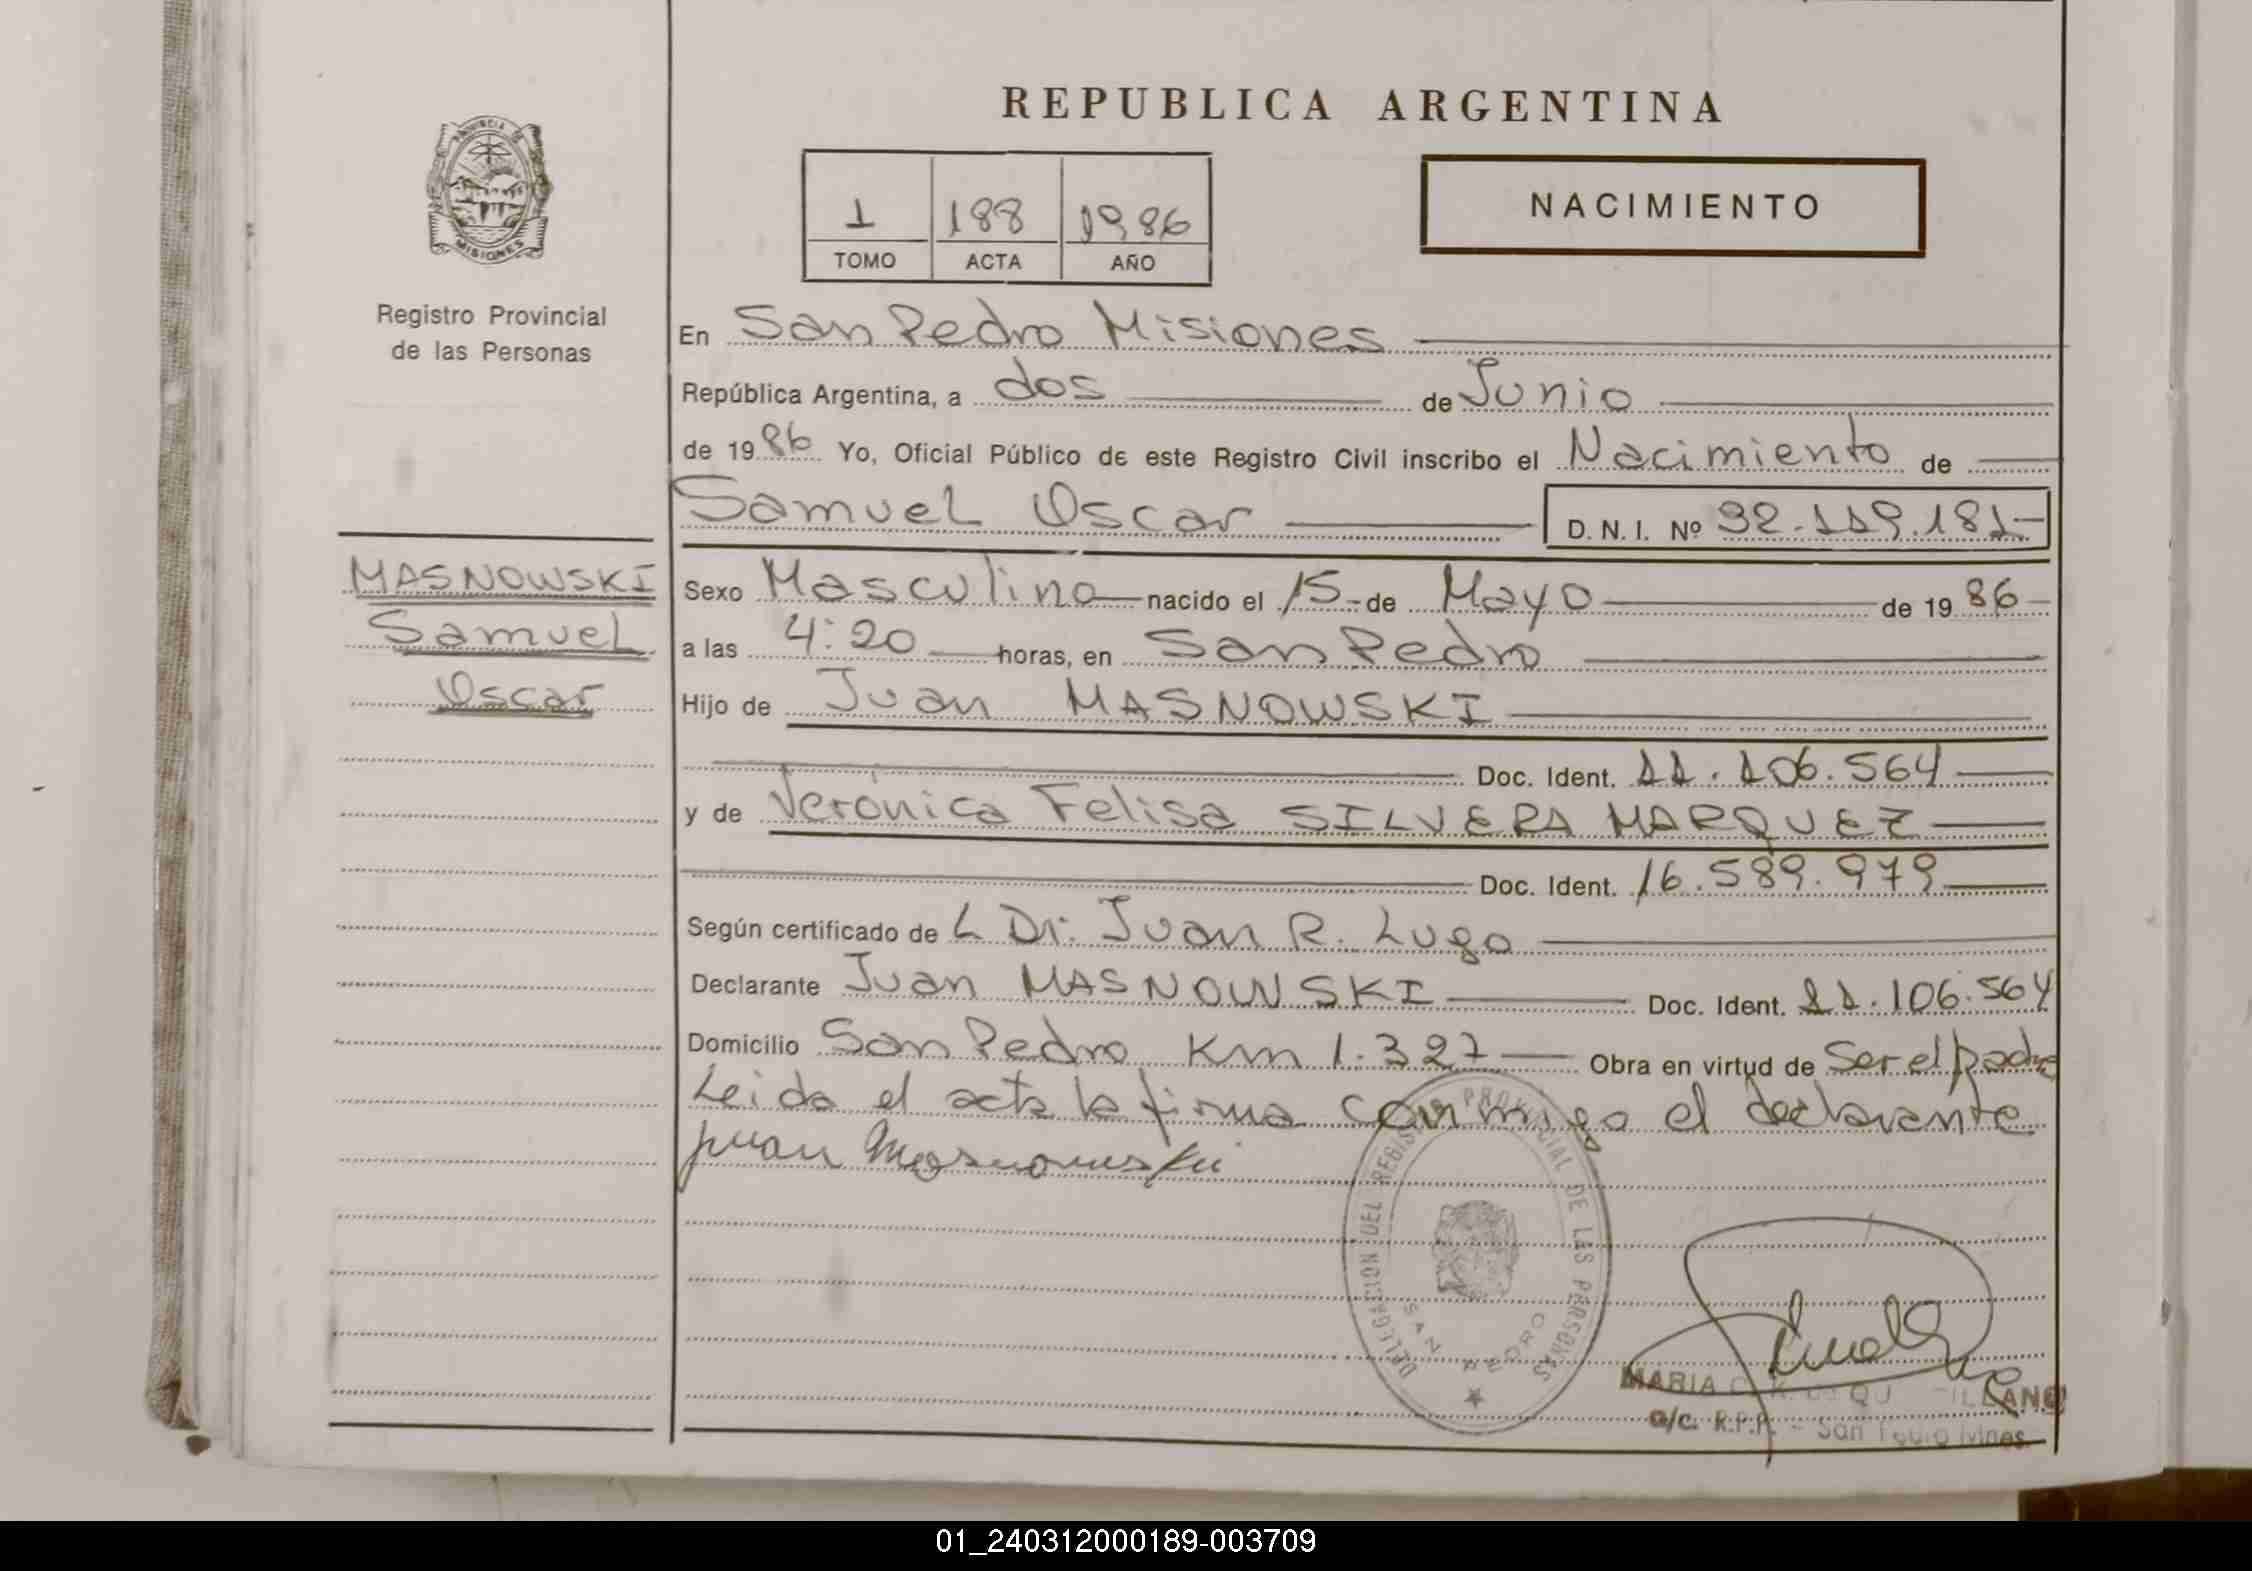 REPUBLICA ARGENTINA
PROVINCIA DE
MISIONES
Registro Provincial
de las Personas
1 188 1986
TOMO ACTA AÑO
NACIMIENTO
En San Pedro Misiones
República Argentina, a dos de Junio
de 1986 Yo, Oficial Público de este Registro Civil inscribo el Nacimiento de
Samuel Oscar D. N. I. Nº 32.119.181
MASNOWSKI
Samuel
Oscar
Sexo Masculino nacido el 15 de Mayo de 1986
a las 4:20 horas, en San Pedro
Hijo de Juan MASNOWSKI
Doc. Ident. 11.106.564
y de Verónica Felisa SILVERA MARQUEZ
Doc. Ident. 16.589.979
Según certificado de L Dr. Juan R. Lugo
Declarante Juan MASNOWSKI Doc. Ident. 11.106.564
Domicilio San Pedro Km 1.327 Obra en virtud de Ser el padre
Leida el acta la firma conmigo el declarante
Juan Masnowski
DELEGACION DEL REGISTRO PROVINCIAL DE LAS PERSONAS
SAN PEDRO
MARIA
a/c. R.P.P. - San Pedro Mnes.
01_240312000189-003709